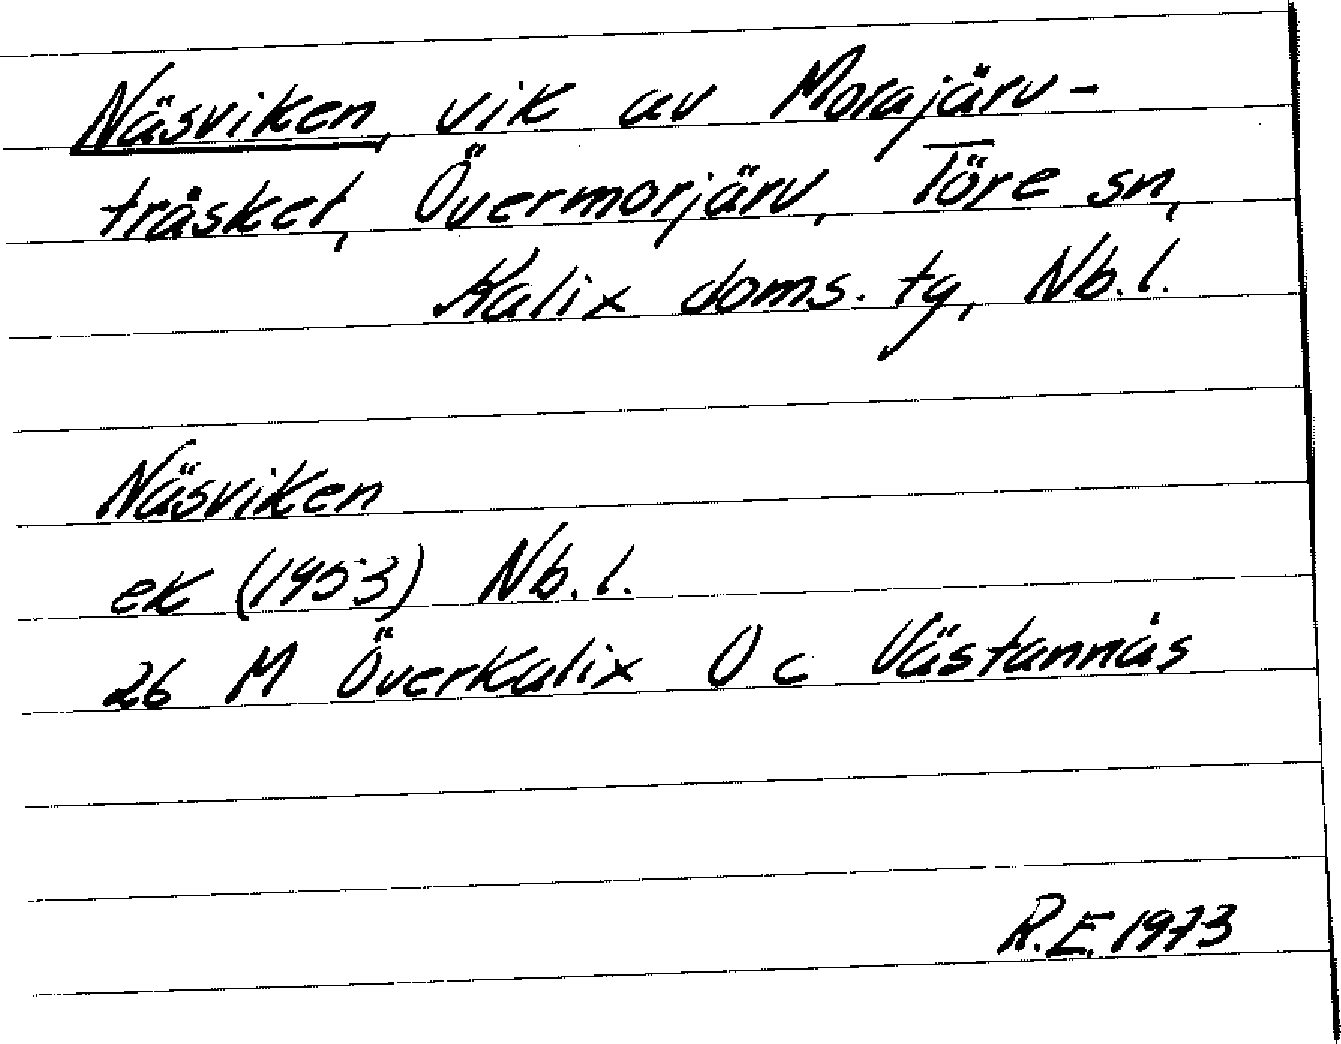 Näsviken, vik av Morajärv-
träsket, Övermorjärv, Töre sn,
Kalix doms. tg, Nb.l.
Näsviken
ek (1953) Nb.l.
26 M Överkalix O c Västannäs
R.E. 1973